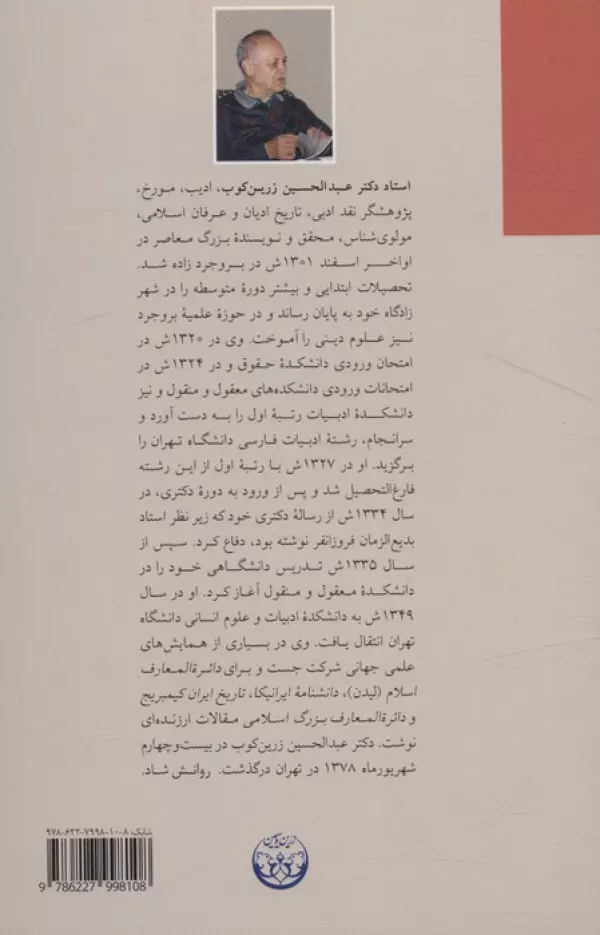 استاد دکتر عبدالحسین زرین‌کوب، ادیب، مورخ،
پژوهشگر نقد ادبی، تاریخ ادیان و عرفان اسلامی،
مولوی‌شناس، محقق و نویسندهٔ بزرگ معاصر در
اواخر اسفند ۱۳۰۱ش در بروجرد زاده شد.
تحصیلات ابتدایی و بیشتر دورهٔ متوسطه را در شهر
زادگاه خود به پایان رساند و در حوزهٔ علمیهٔ بروجرد
نیز علوم دینی را آموخت. وی در ۱۳۲۰ش در
امتحان ورودی دانشکدهٔ حقوق و در ۱۳۲۴ش در
امتحانات ورودی دانشکده‌های معقول و منقول و نیز
دانشکدهٔ ادبیات رتبهٔ اول را به دست آورد و
سرانجام، رشتهٔ ادبیات فارسی دانشگاه تهران را
برگزید. او در ۱۳۲۷ش با رتبهٔ اول از این رشته
فارغ‌التحصیل شد و پس از ورود به دورهٔ دکتری، در
سال ۱۳۳۴ش از رسالهٔ دکتری خود که زیر نظر استاد
بدیع‌الزمان فروزانفر نوشته بود، دفاع کرد. سپس از
سال ۱۳۳۵ش تدریس دانشگاهی خود را در
دانشکدهٔ معقول و منقول آغاز کرد. او در سال
۱۳۴۹ش به دانشکدهٔ ادبیات و علوم انسانی دانشگاه
تهران انتقال یافت. وی در بسیاری از همایش‌های
علمی جهانی شرکت جست و برای دائرةالمعارف
اسلام (لیدن)، دانشنامهٔ ایرانیکا، تاریخ ایران کیمبریج
و دائرةالمعارف بزرگ اسلامی مقالات ارزنده‌ای
نوشت. دکتر عبدالحسین زرین‌کوب در بیست‌وچهارم
شهریورماه ۱۳۷۸ در تهران درگذشت. روانش شاد.
شابک: ۸-۱۰-۷۹۹۸-۶۲۲-۹۷۸
9 786227 998108